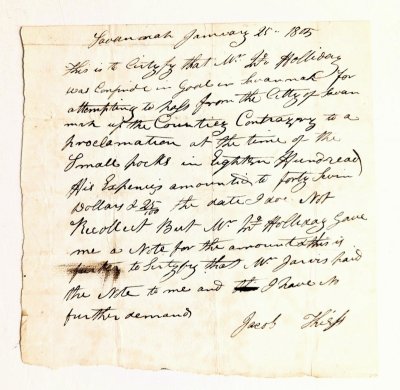 Savannah January 25th 1805
This is to Certyfy that Mr Wm Holliday
was Confined in Goal in Savannah for
attempting to pass from the Citty of Savan
nah up the Countrey Contrarey to a
proclamation at the time of the
Small pocks in Eighten Hundread
His Expences amounted to forty Seven
Dollars & 25/100 the date I doe Not
Recollect But Mr Wm Holliday Gave
me a Note for the amount & this is
to Sertyfy that Mr Jarvis paid
the Note to me and I have no
further demand
Jacob